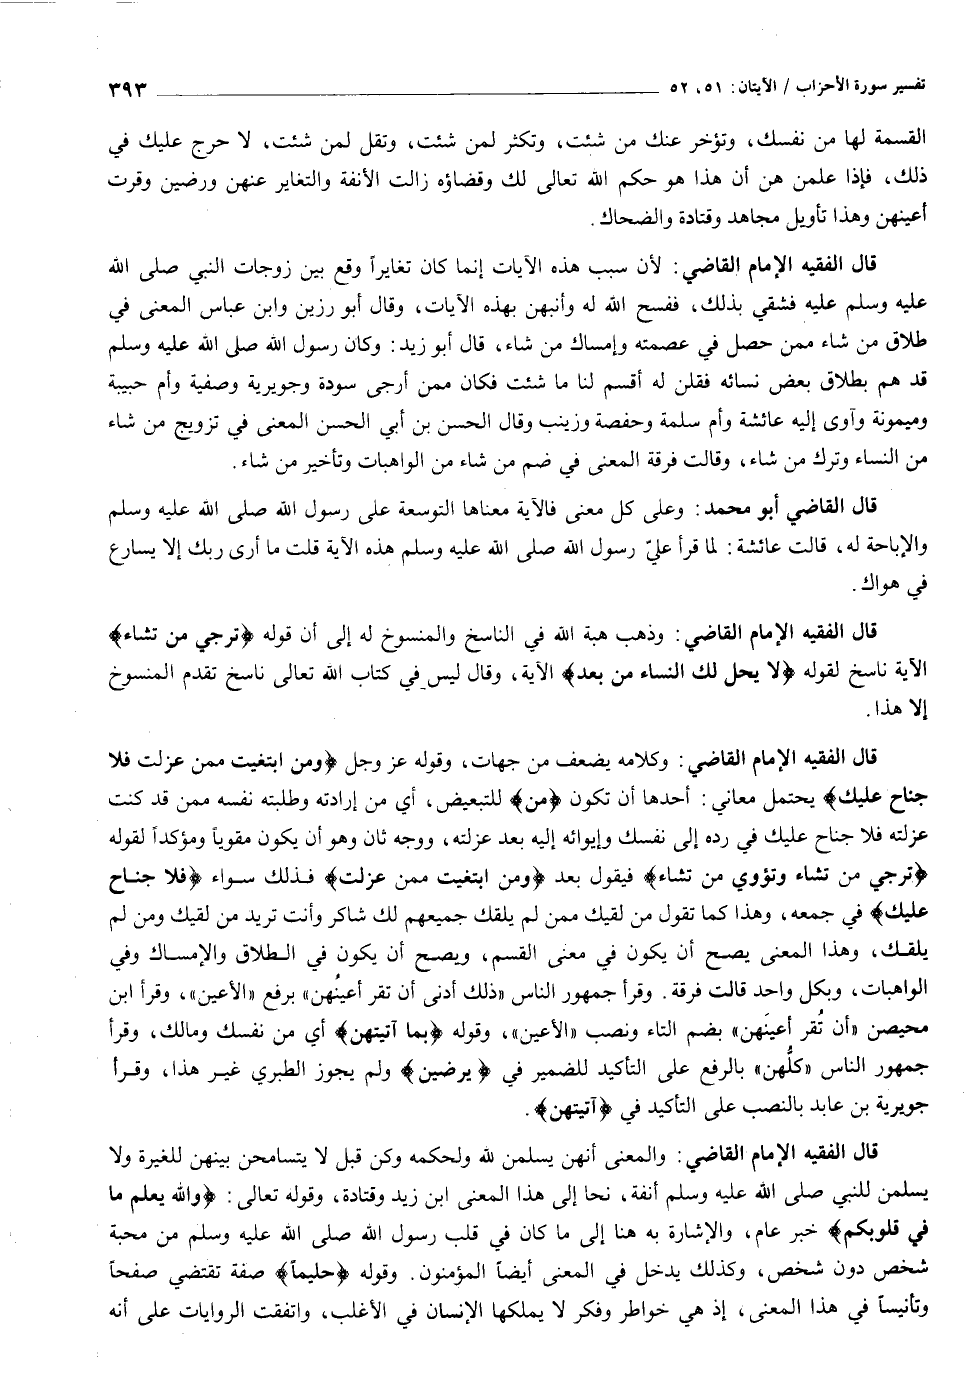 تفسير سورة الأحزاب / الآيتان: ٥١، ٥٢ ٣٩٣
القسمة لها من نفسك، وتؤخر عنك من شئت، وتكثر لمن شئت، وتقل لمن شئت، لا حرج عليك في
ذلك، فإذا علمن هن أن هذا هو حكم الله تعالى لك وقضاؤه زالت الأنفة والتغاير عنهن ورضين وقرت
أعينهن وهذا تأويل مجاهد وقتادة والضحاك.
قال الفقيه الإمام القاضي: لأن سبب هذه الآيات إنما كان تغايراً وقع بين زوجات النبي صلى الله
عليه وسلم عليه فشقي بذلك، ففسح الله له وأنبهن بهذه الآيات، وقال أبو رزين وابن عباس المعنى في
طلاق من شاء ممن حصل في عصمته وإمساك من شاء، قال أبو زيد: وكان رسول الله صلى الله عليه وسلم
قد هم بطلاق بعض نسائه فقلن له أقسم لنا ما شئت فكان ممن أرجى سودة وجويرية وصفية وأم حبيبة
وميمونة وآوى إليه عائشة وأم سلمة وحفصة وزينب وقال الحسن بن أبي الحسن المعنى في تزويج من شاء
من النساء وترك من شاء، وقالت فرقة المعنى في ضم من شاء من الواهبات وتأخير من شاء.
قال القاضي أبو محمد: وعلى كل معنى فالآية معناها التوسعة على رسول الله صلى الله عليه وسلم
والإباحة له، قالت عائشة: لما قرأ عليّ رسول الله صلى الله عليه وسلم هذه الآية قلت ما أرى ربك إلا يسارع
في هواك.
قال الفقيه الإمام القاضي: وذهب هبة الله في الناسخ والمنسوخ له إلى أن قوله ﴿ترجي من تشاء﴾
الآية ناسخ لقوله ﴿لا يحل لك النساء من بعد﴾ الآية، وقال ليس في كتاب الله تعالى ناسخ تقدم المنسوخ
إلا هذا.
قال الفقيه الإمام القاضي: وكلامه يضعف من جهات، وقوله عز وجل ﴿ومن ابتغيت ممن عزلت فلا
جناح عليك﴾ يحتمل معاني: أحدها أن تكون ﴿من﴾ للتبعيض، أي من إرادته وطلبته نفسه ممن قد كنت
عزلته فلا جناح عليك في رده إلى نفسك وإيوائه إليه بعد عزلته، ووجه ثان وهو أن يكون مقوياً ومؤكداً لقوله
﴿ترجي من تشاء وتؤوي من تشاء﴾ فيقول بعد ﴿ومن ابتغيت ممن عزلت﴾ فذلك سواء ﴿فلا جناح
عليك﴾ في جمعه، وهذا كما تقول من لقيك ممن لم يلقك جميعهم لك شاكر وأنت تريد من لقيك ومن لم
يلقك، وهذا المعنى يصح أن يكون في معنى القسم، ويصح أن يكون في الطلاق والإمساك وفي
الواهبات، وبكل واحد قالت فرقة. وقرأ جمهور الناس «ذلك أدنى أن تقر أعينُهن» برفع «الأعين»، وقرأ ابن
محيصن «أن تُقر أعينَهن» بضم التاء ونصب «الأعين»، وقوله ﴿بما آتيتهن﴾ أي من نفسك ومالك، وقرأ
جمهور الناس «كلُّهن» بالرفع على التأكيد للضمير في ﴿يرضين﴾ ولم يجوز الطبري غير هذا، وقرأ
جويرية بن عابد بالنصب على التأكيد في ﴿آتيتهن﴾.
قال الفقيه الإمام القاضي: والمعنى أنهن يسلمن لله ولحكمه وكن قبل لا يتسامحن بينهن للغيرة ولا
يسلمن للنبي صلى الله عليه وسلم أنفة، نحا إلى هذا المعنى ابن زيد وقتادة، وقوله تعالى: ﴿والله يعلم ما
في قلوبكم﴾ خبر عام، والإشارة به هنا إلى ما كان في قلب رسول الله صلى الله عليه وسلم من محبة
شخص دون شخص، وكذلك يدخل في المعنى أيضاً المؤمنون. وقوله ﴿حليماً﴾ صفة تقتضي صفحاً
وتأنيساً في هذا المعنى، إذ هي خواطر وفكر لا يملكها الإنسان في الأغلب، واتفقت الروايات على أنه